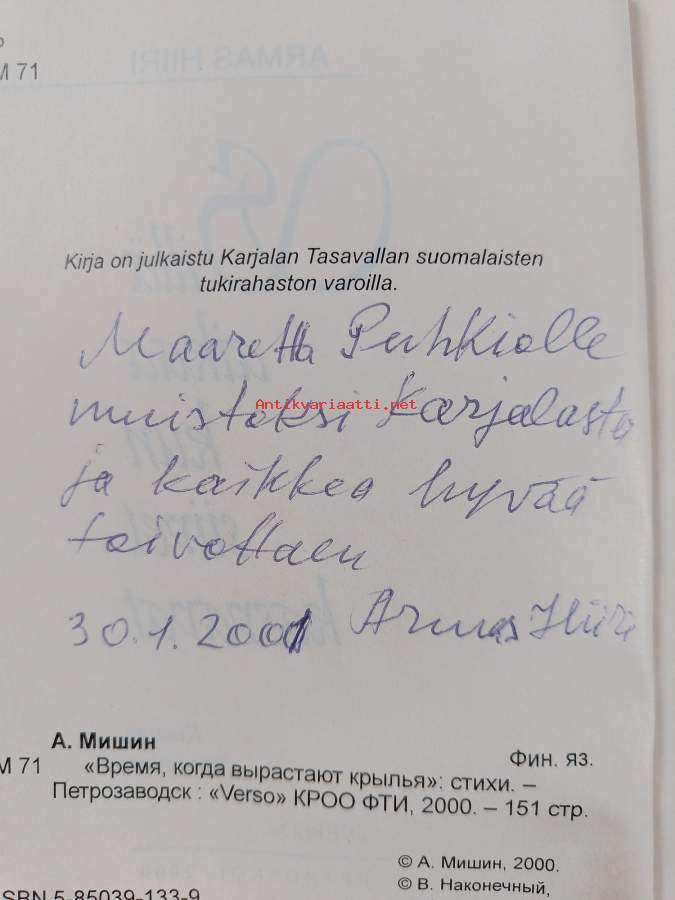 М 71
Kirja on julkaistu Karjalan Tasavallan suomalaisten
tukirahaston varoilla.
Maaretta Puhkiolle
muistoksi Karjalasta
Antikvariaatti.net
ja kaikkea hyvää
toivottaen
30.1.2001 Armas Hiiri
А. Мишин
Фин. яз.
М 71 «Время, когда вырастают крылья»: стихи. –
Петрозаводск : «Verso» КРОО ФТИ, 2000. – 151 стр.
© А. Мишин, 2000.
© В. Наконечный,
ISBN 5-85039-133-9